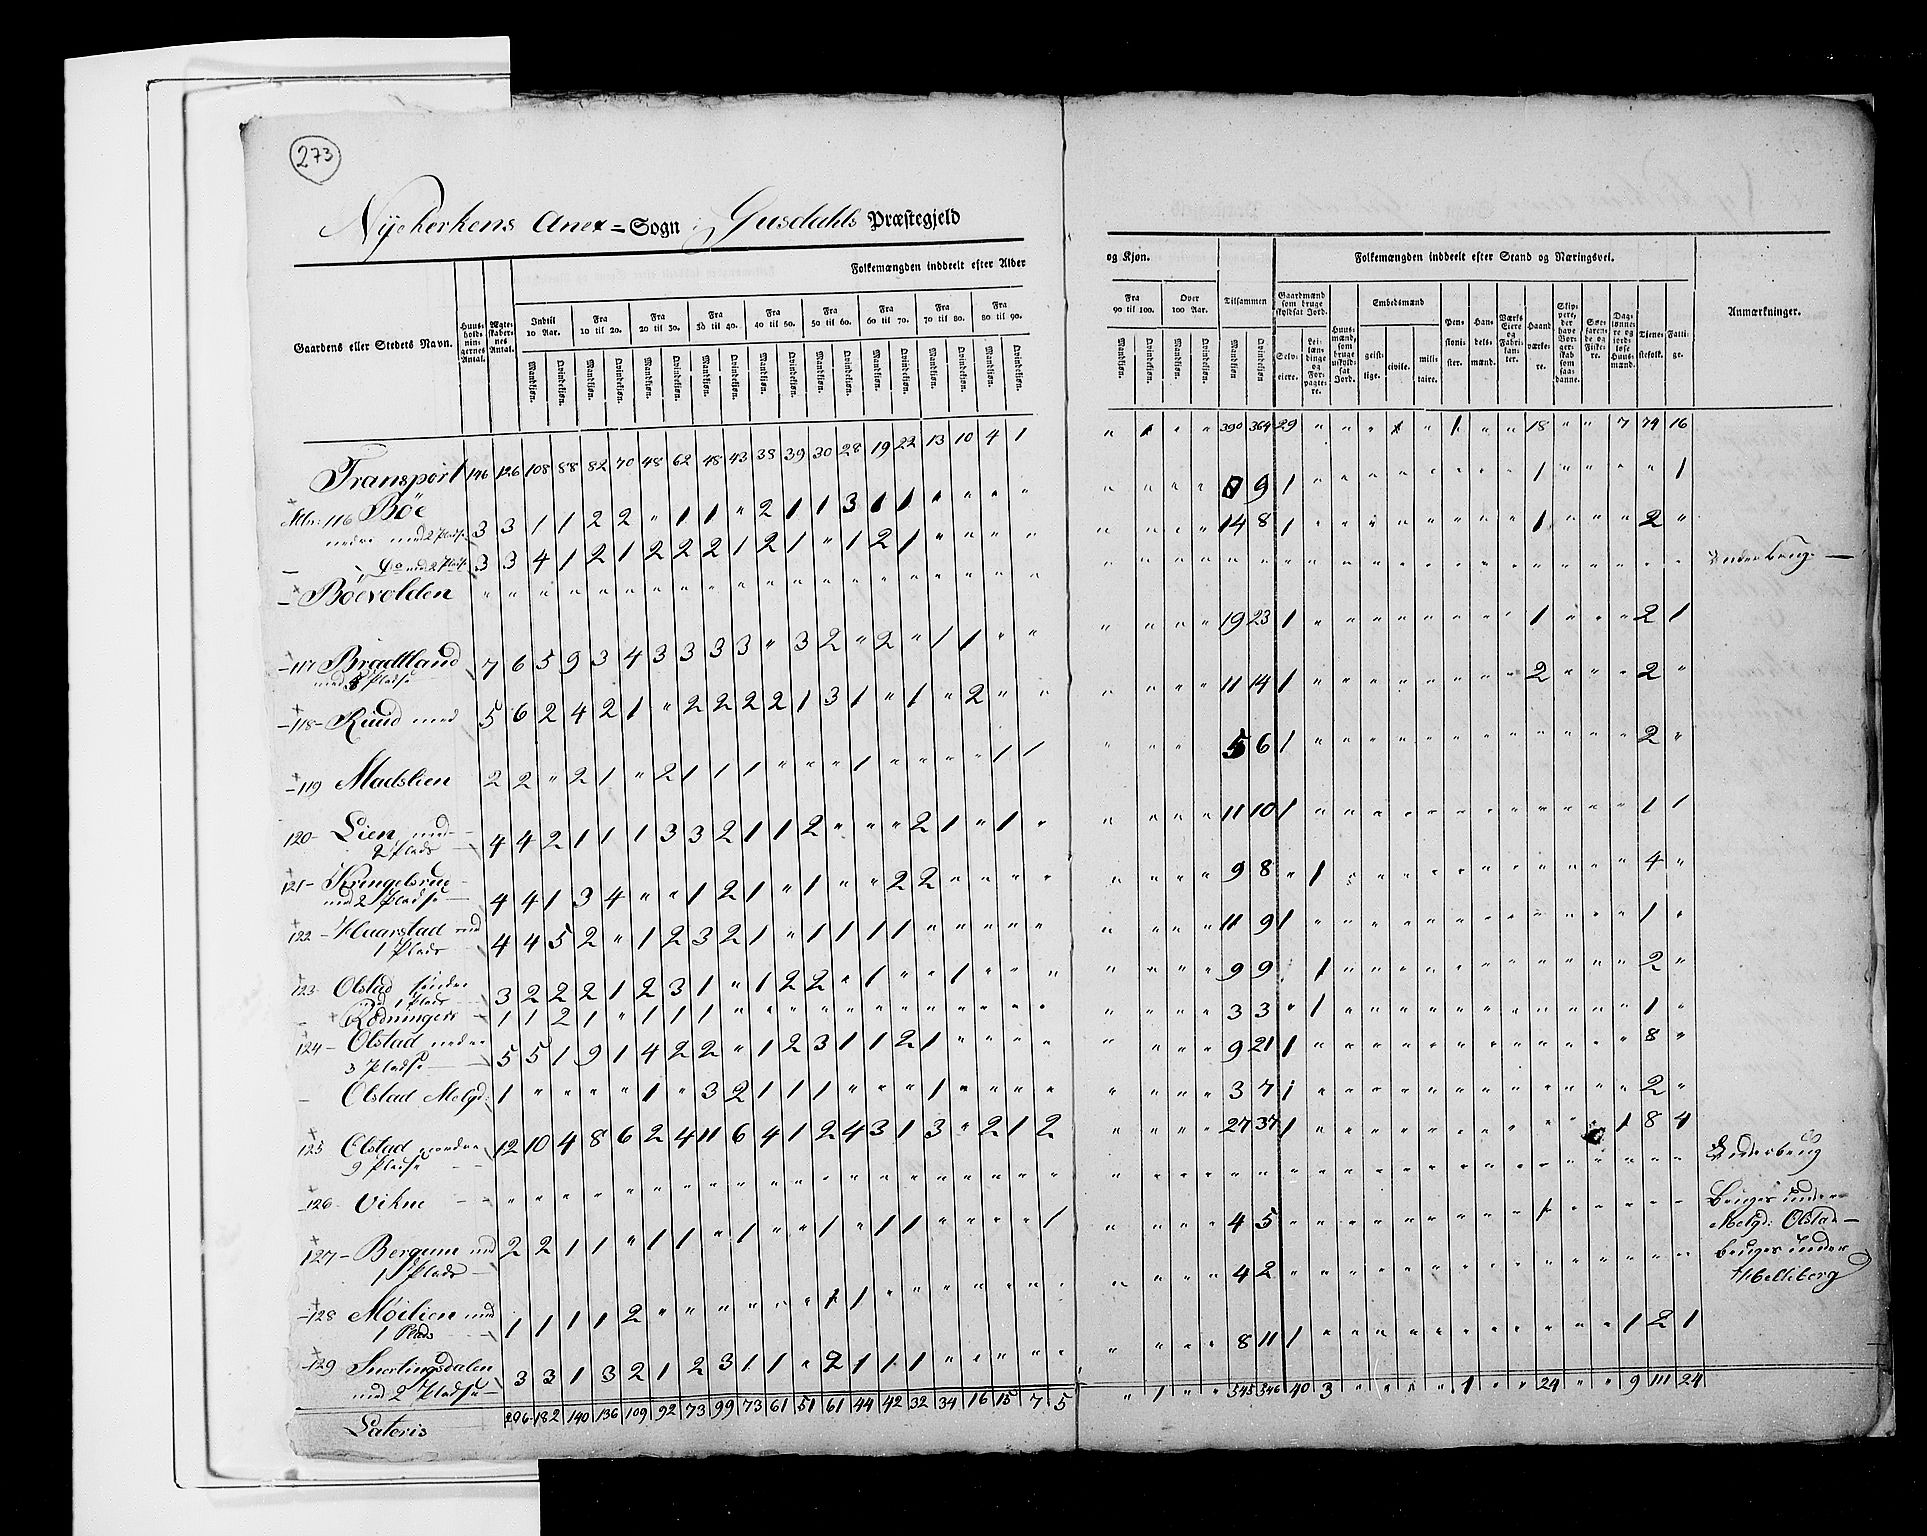 273
Nyekerkens Anex = Sogn i Gusdahls Præstegjeld
Folkemængden inddeelt efter Alder og Kjøn.
Folkemængden inddeelt efter Stand og Næringsvei.
Gaardens eller Stedets Navn.
Huusholdningernes Antal.
Ægteskabernes Antal.
Indtil 10 Aar.
Fra 10 til 20.
Fra 20 til 30.
Fra 30 til 40.
Fra 40 til 50.
Fra 50 til 60.
Fra 60 til 70.
Fra 70 til 80.
Fra 80 til 90.
Fra 90 til 100.
Over 100 Aar.
Tilsammen
Mandkjøn. Qvindekjøn.
Gaardmænd som bruge skyldsat Jord.
Selveiere.
Leilændinge og Forpagtere.
Huusmænd, som bruge uskyldsat Jord.
Embedsmænd
geistlige. civile. militaire.
Pensionister.
Handelsmænd.
Værks Eiere og Fabrikanter.
Haandværkere.
Skippere, der have Borgerskab som saadanne.
Søefarende og Fiskere.
Daglønnere og jordløse Huusmænd.
Tienestefolk.
Fattige.
Anmærkninger.
Transport 146 126 108 88 82 70 48 62 48 43 38 39 30 28 19 22 13 10 4 1 " 1 " " 390 364 29 " " " 1 " 1 " " 18 " " 7 74 16
Mtr: 116 Böe
nedre med 2 Pladse 3 3 1 1 2 2 " 1 1 " 2 1 1 3 1 1 1 " " " " " " " " 9 1 " " " " " " " " 1 " " " " 1
Do med 2 Pladse 3 3 4 1 2 1 2 2 2 1 2 1 " 1 2 1 " " " " " " " " 14 8 1 " " " " " " " " 1 " " " 2 "
Boevolden " " " " " " " " " " " " " " " " " " " " " " " " " " " " " " " " " " " " " " " " " Underbrug
117 Bradtland
med 8 Pladse 7 6 5 9 3 4 3 3 3 3 " 3 2 " 2 " 1 1 " " " " " " 19 23 1 " " " " " " " " 1 " " " 2 1
118 Ruud med 5 6 2 4 2 1 " 2 2 2 2 1 3 1 " 1 " 2 " " " " " " 11 14 1 " " " " " " " " 2 " " " 2 "
119 Madslien 2 2 " 2 1 " 2 1 1 1 " " " 1 " " " " 1 1 " " " 5 6 1 " " " " " " " " " " " " 2 "
120 Lien med
2 Plads 4 4 2 1 1 1 3 3 2 1 1 2 " " " 2 1 " 1 " " " " " 11 10 1 " " " " " " " " " " " " 1 1
121 Kringelsrue
med 2 Pladse 4 4 1 3 4 " " 1 2 1 " 1 " " 2 2 " " " " " " " " 9 8 " 1 " " " " " " " " " " " 4 "
122 Haarstad med
1 Plads 4 4 5 2 " 1 2 3 2 1 " 1 1 1 1 " " " " " " " " " 11 9 1 " " " " " " " " " " " " 1 "
123 Olstad søndre
med 1 Plads 3 2 2 2 1 2 3 1 " 1 2 2 " 1 " " 1 " " " " " " " 9 9 1 " " " " " " " " " " " 2 "
Rødningen 1 1 2 1 " 1 1 1 " " " " " " " " " " " " " " " " 3 3 " 1 " " " " " " " " " " " 1 "
124 Olstad nedre
3 Pladse 5 5 1 9 1 4 2 2 " 1 2 3 1 1 2 1 " " " " " " " " 9 21 1 " " " " " " " " " " " " 8 "
Olstad Melgd: 1 " " " " 1 " 3 2 1 1 1 " " " 1 " " " " " " " " 3 7 1 " " " " " " " " " " " " 2 "
125 Olstad nordre
9 Pladse 12 10 4 8 6 2 4 11 6 4 1 2 4 3 1 3 " 2 1 2 " " " " 27 37 1 " " " " " " " " " " " 1 8 4
126 Vikne " " " " " " " " " " " " " " " " " " " " " " " " " " " " " " " " " " " " " " " Underbrug
127 Bergum med
1 Plads 2 2 1 1 " 1 1 " 1 " " 1 " 1 1 " " " " 1 " " " " 4 5 " " " " " " " " " 1 " " " " " Bruges under
Melgd: Olstad
128 Möilien med
1 Plads 1 1 1 1 2 " " " " " " 1 1 " " " " " " " " " " 4 2 " " " " " " " " " " " " " " " bruges under
Helleberg
129 Snerlingsdalen
med 2 Pladse 3 3 1 3 2 1 2 3 1 1 " 2 1 1 1 1 " " " " " " " " 8 11 1 " " " " " " " " " " " 1 2 1
Lateris 206 182 140 136 109 92 73 99 73 61 51 61 44 42 32 34 16 15 7 5 " 1 " " 545 546 40 3 " " 1 " 1 " " 24 " " 9 111 24